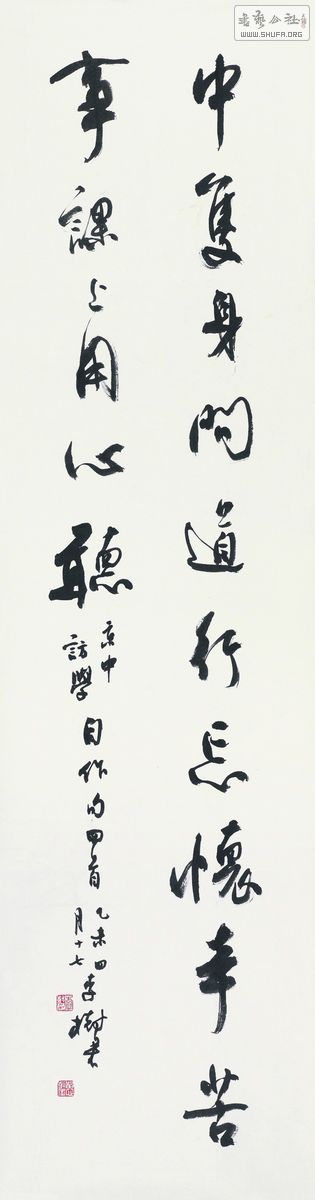 書藝公社
WWW.SHUFA.ORG
中隻身問道行忘懷辛苦
事課上用心聽
京中訪學自作句四首乙未四月十七李樹